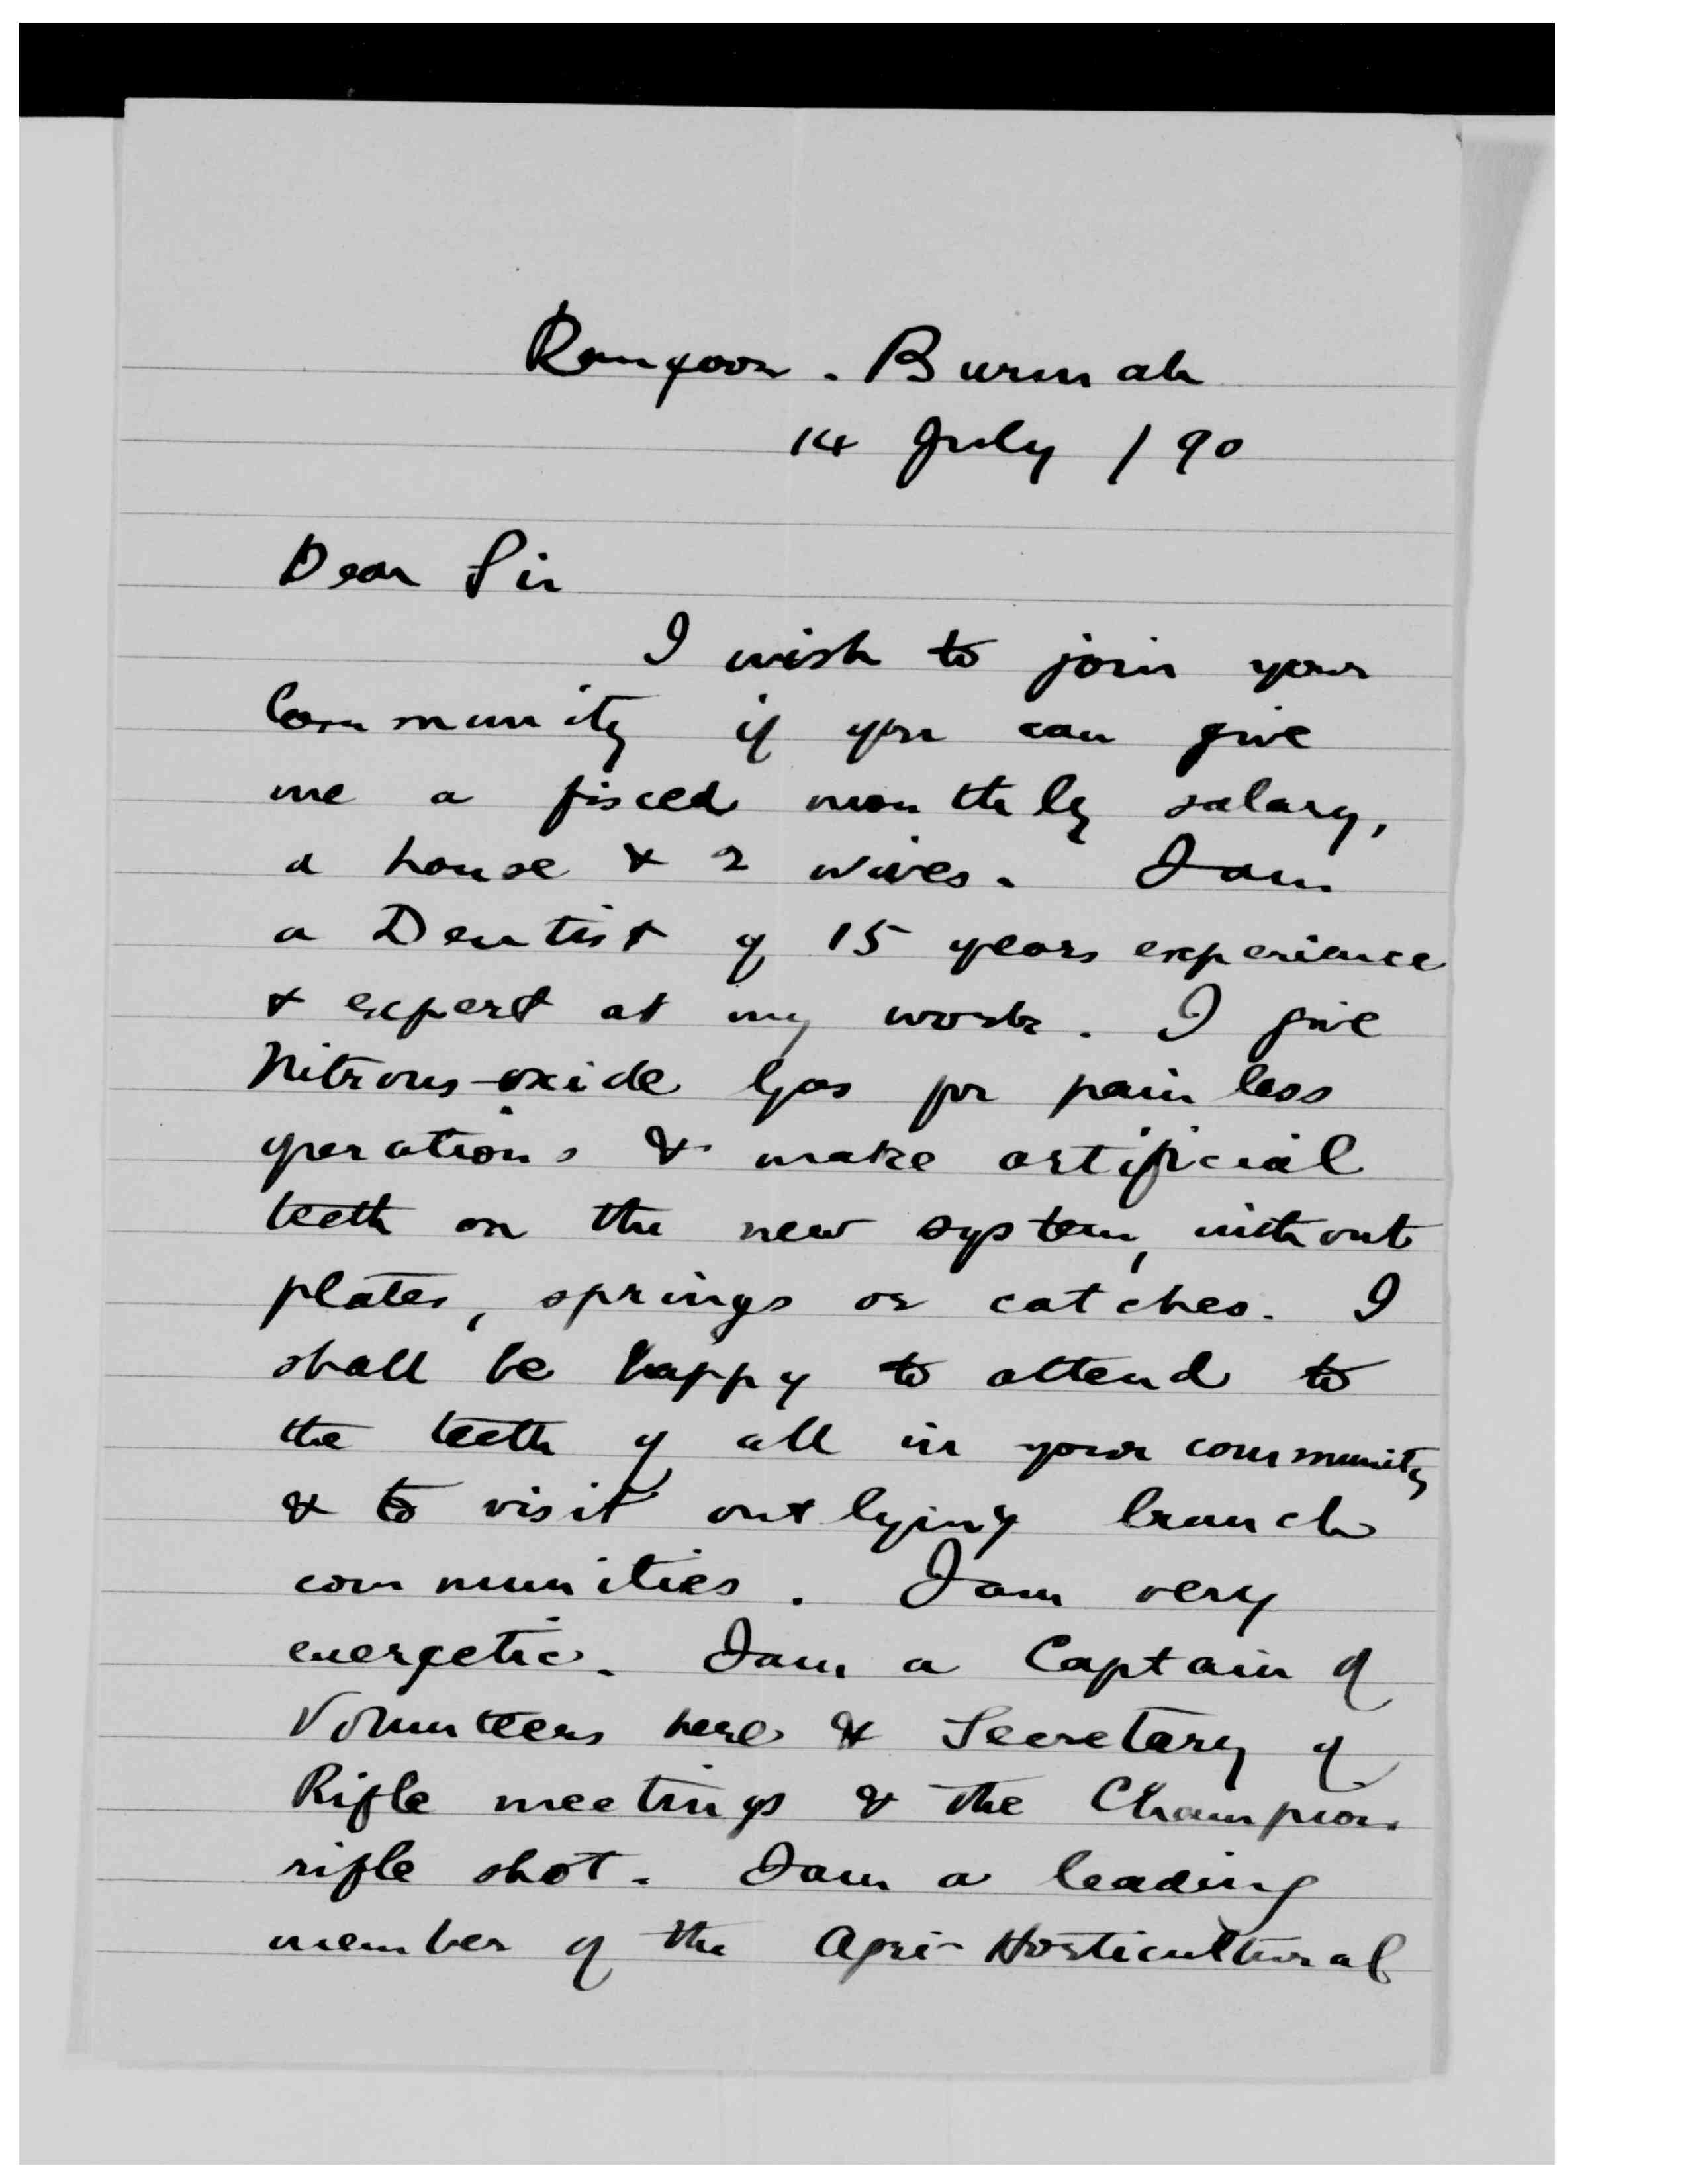 Rangoon. Burmah
14 July /90
Dear Sir
I wish to join your
Community if you can give
me a fixed monthly salary,
a house & 2 wives. I am
a Dentist of 15 years experience
& expert at my work. I give
Nitrous-oxide Gas for painless
operations & make artificial
teeth on the new system, without
plates, springs or catches. I
shall be happy to attend to
the teeth of all in your community
& to visit outlying branch
communities. I am very
energetic. I am a Captain of
Volunteers here & Secretary of
Rifle meetings & the Champion
rifle shot. I am a leading
member of the Agri-Horticultural